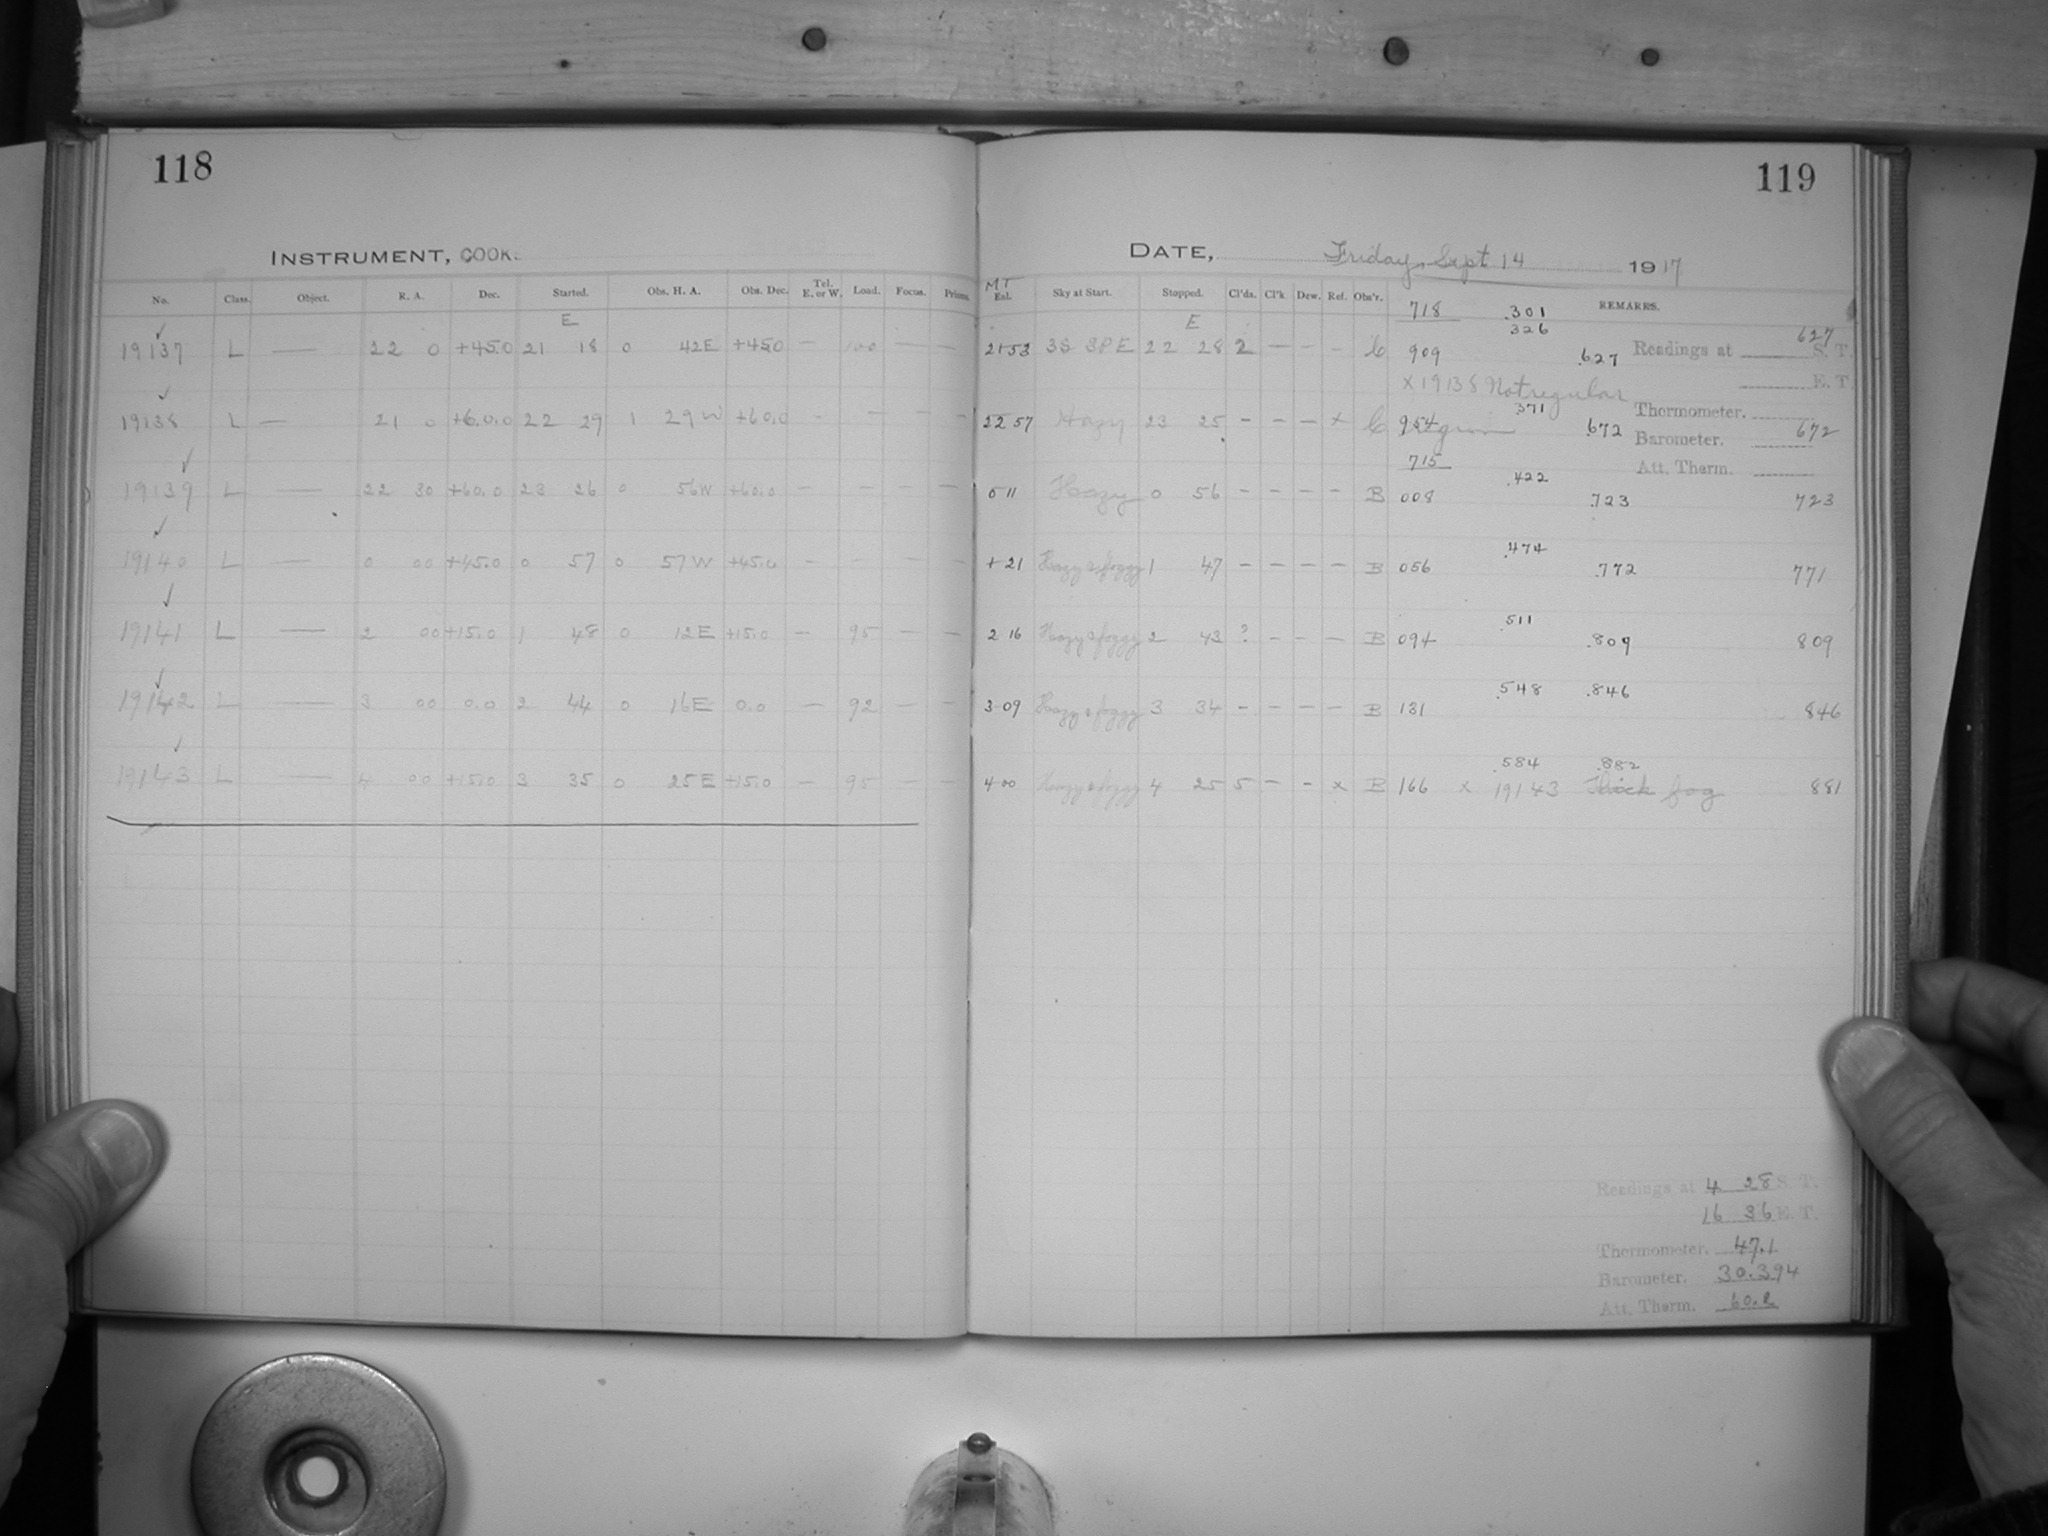 118
INSTRUMENT, COOK.
No. Class. Object. R. A. Dec. Started. Obs. H. A. Obs. Dec. Tel. E. or W. Load. Focus. Prisms.
E
19137 L — 22 0 +45.0 21 18 0 42E +45.0 — 100 — —
19138 L — 21 0 +60.0 22 29 1 29W +60.0 - — — —
19139 L — 22 30 +60.0 23 26 0 56W +60.0 — — — —
19140 L — 0 00 +45.0 0 57 0 57W +45.0 — — — —
19141 L — 2 00 +15.0 1 48 0 12E +15.0 — 95 — —
19142 L — 3 00 0.0 2 44 0 16E 0.0 — 92 — —
19143 L — 4 00 +15.0 3 35 0 25E +15.0 — 95 — —
119
DATE, Friday, Sept 14 1917
MT
Sky at Start. Stopped. Cl'ds. Cl'k Dew. Ref. Obs'r. REMARKS.
E
718 .301
.326
21 53 3S 3PE 22 28 2 — - - 909 .627 Readings at 627 S. T.
x 19138 Not regular E. T.
.371 Thermometer.
22 57 Hazy 23 25 - — — x 954 .672 Barometer. 672
715 Att. Therm.
.422
0 11 Hazy 0 56 - - - - B 008 .723 723
.474
1 21 Hazy & foggy 1 47 — — — — B 056 .772 771
.511
2 16 Hazy & foggy 2 43 ? - - — B 094 .809 809
.548 .846
3 09 Hazy & foggy 3 34 - — — — B 131 846
.584 .882
4 00 Hazy & foggy 4 25 5 — - x B 166 x 19143 Thick fog 881
Readings at 4 28 S. T.
16 36 E. T.
Thermometer. 47.1
Barometer. 30.394
Att. Therm.